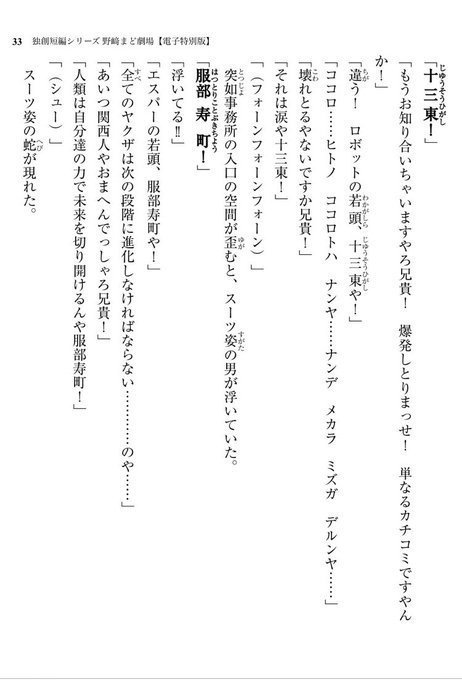 33 独創短編シリーズ 野﨑まど劇場【電子特別版】
「十三東！」
「もうお知り合いちゃいますやろ兄貴！　爆発しとりまっせ！　単なるカチコミですやん
か！」
「違う！　ロボットの若頭、十三東や！」
「ココロ……ヒトノ　ココロトハ　ナンヤ……ナンデ　メカラ　ミズガ　デルンヤ……」
「壊れとるやないですか兄貴！」
「それは涙や十三東！」
「（フォーンフォーンフォーン）」
突如事務所の入口の空間が歪むと、スーツ姿の男が浮いていた。
「服部寿町！」
「浮いてる‼」
「エスパーの若頭、服部寿町や！」
「全てのヤクザは次の段階に進化しなければならない…………のや……」
「あいつ関西人やおまへんでっしゃろ兄貴！」
「人類は自分達の力で未来を切り開けるんや服部寿町！」
「（シュー）」
スーツ姿の蛇が現れた。